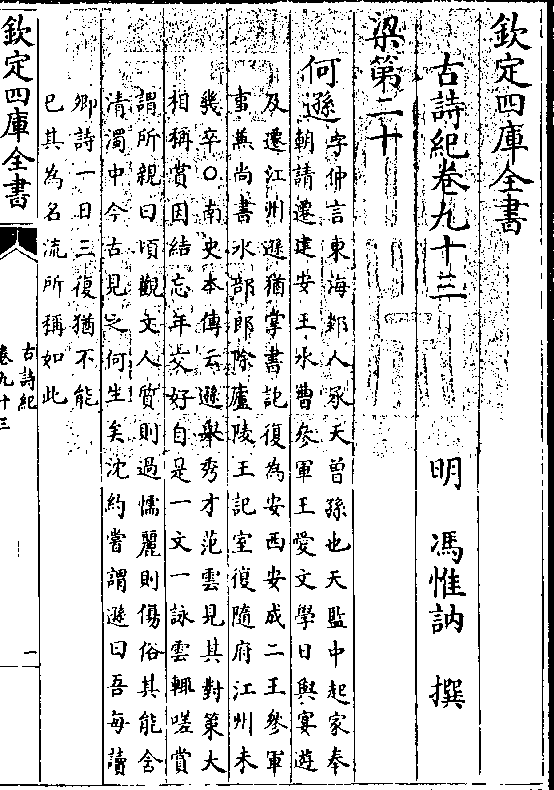 欽定四庫全書
古詩紀卷九十三
明 馮惟訥 撰
梁第二十
何遜
字仲言東海郯人承天曾孫也天監中起家奉
朝請遷建安王水曹參軍王愛文學日與宴遊
及遷江州遜猶掌書記復為安西安成二王參軍
事兼尚書水部郎除廬陵王記室復隨府江州未
幾卒○南史本傳云遜舉秀才范雲見其對策大
相稱賞因結忘年交好自是一文一詠雲輒嗟賞
謂所親曰頃觀文人質則過懦麗則傷俗其能含
清濁中今古見之何生矣沈約嘗謂遜曰吾每讀
卿詩一日三復猶不能
已其為名流所稱如此
欽定四庫全書
古詩紀
卷九十三
一